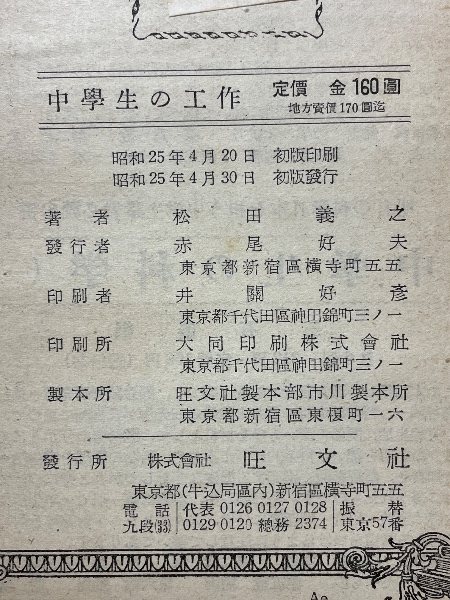 中學生の工作 定價 金160圓
地方賣價170圓迄
昭和25年4月20日 初版印刷
昭和25年4月30日 初版發行
著者 松田義之
發行者 赤尾好夫
東京都新宿區横寺町五五
印刷者 井關好彥
東京都千代田區神田錦町三ノ一
印刷所 大同印刷株式會社
東京都千代田區神田錦町三ノ一
製本所 旺文社製本部市川製本所
東京都新宿區東榎町一六
發行所 株式會社 旺文社
東京都(牛込局區內)新宿區橫寺町五五
電話 代表 0126 0127 0128 振替
九段(33) 0129 0120 總務 2374 東京57番